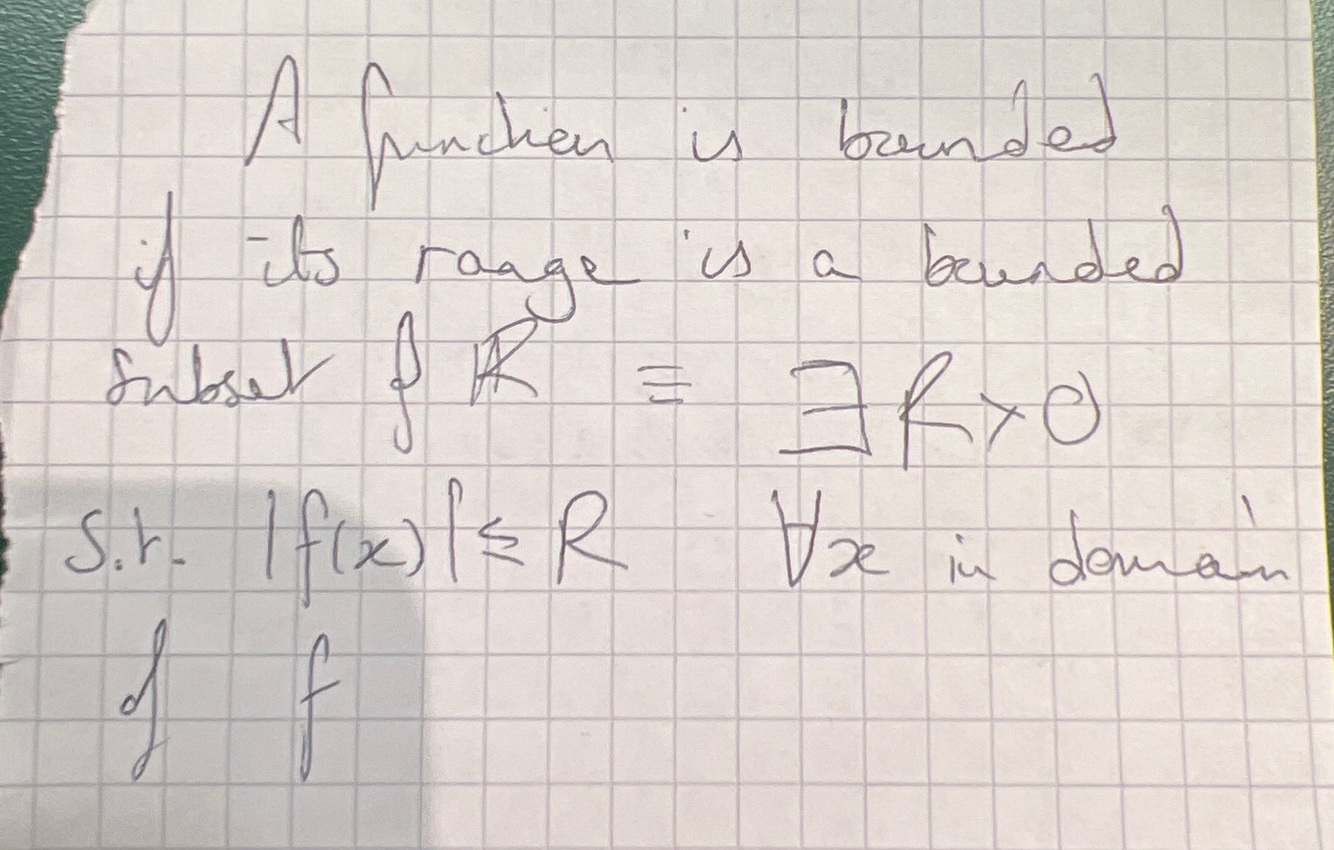 A function is bounded
if its range is a bounded
subset of ℝ ≡ ∃ R > 0
s.t. |f(x)| ≤ R ∀x in domain
of f